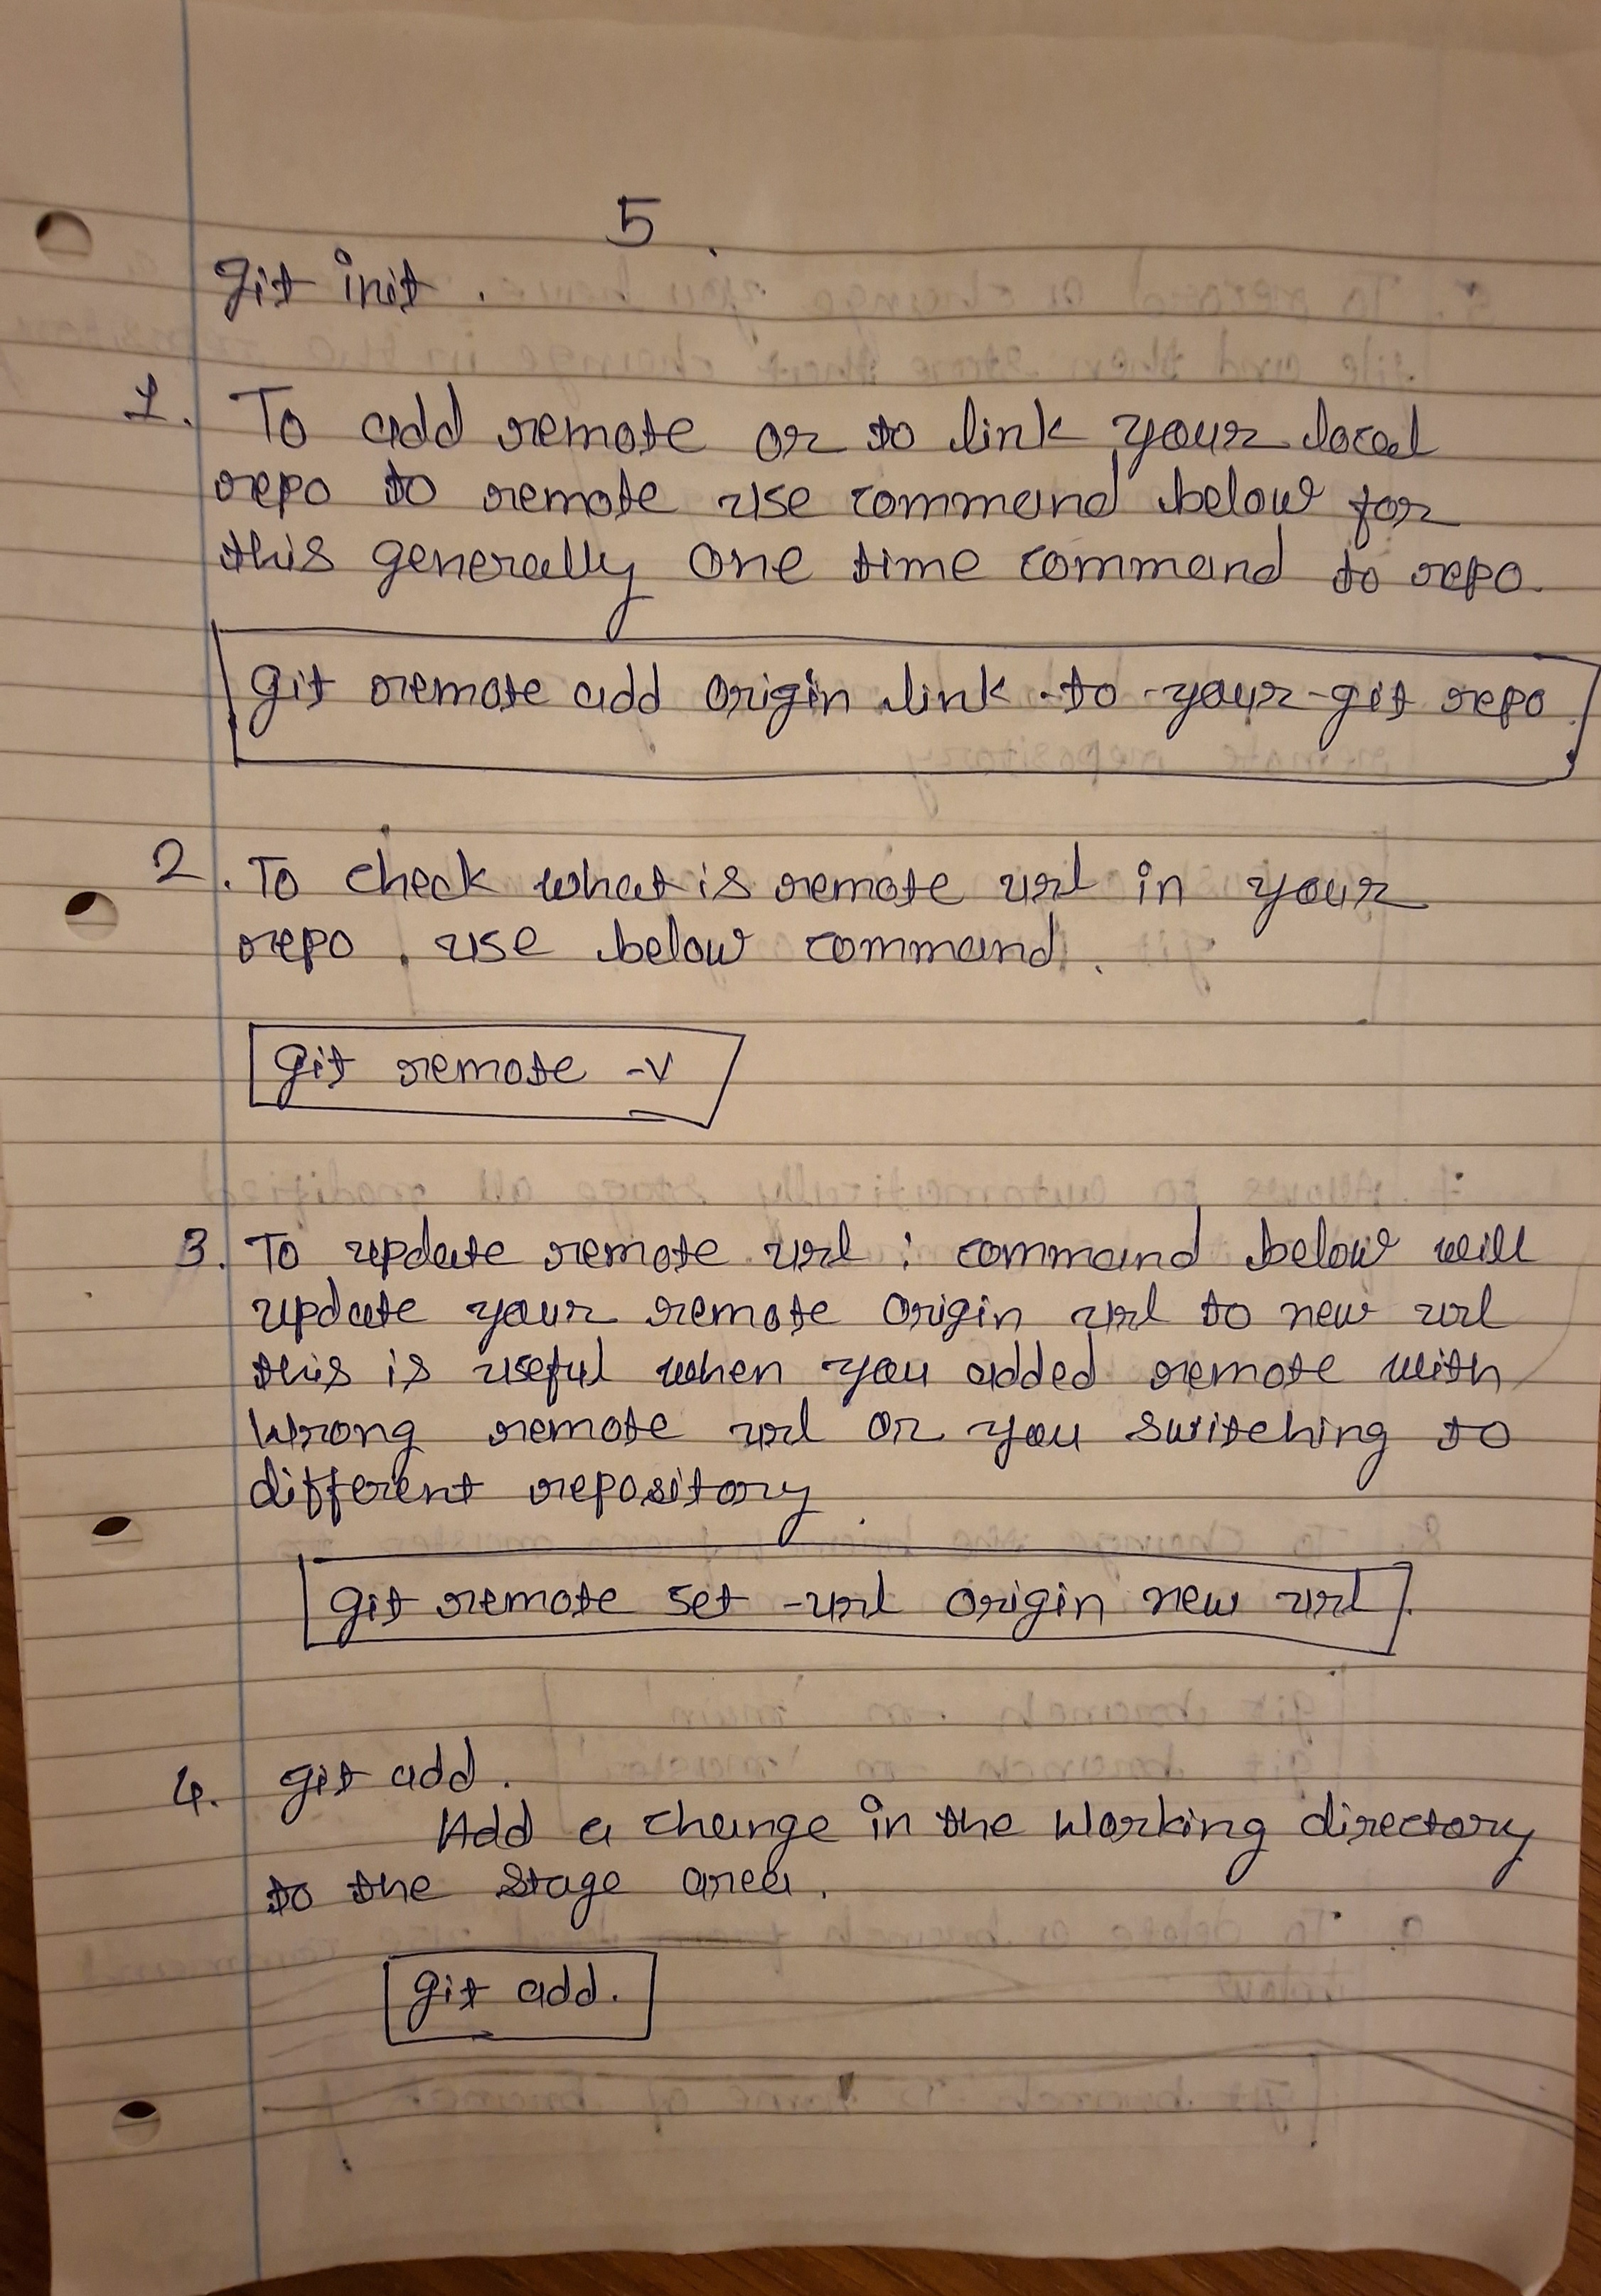 5.
git init.
1. To add remote or to link your local
repo to remote use command below for
this generally one time command to repo.
git remote add origin link-to-your-git repo
2. To check what is remote url in your
repo. use below command.
git remote -v
3. To update remote url : command below will
update your remote origin url to new url
this is useful when you added remote with
wrong remote url or you switching to
different repository.
git remote set -url origin new url.
4. git add.
Add a change in the working directory
to the stage area.
git add.